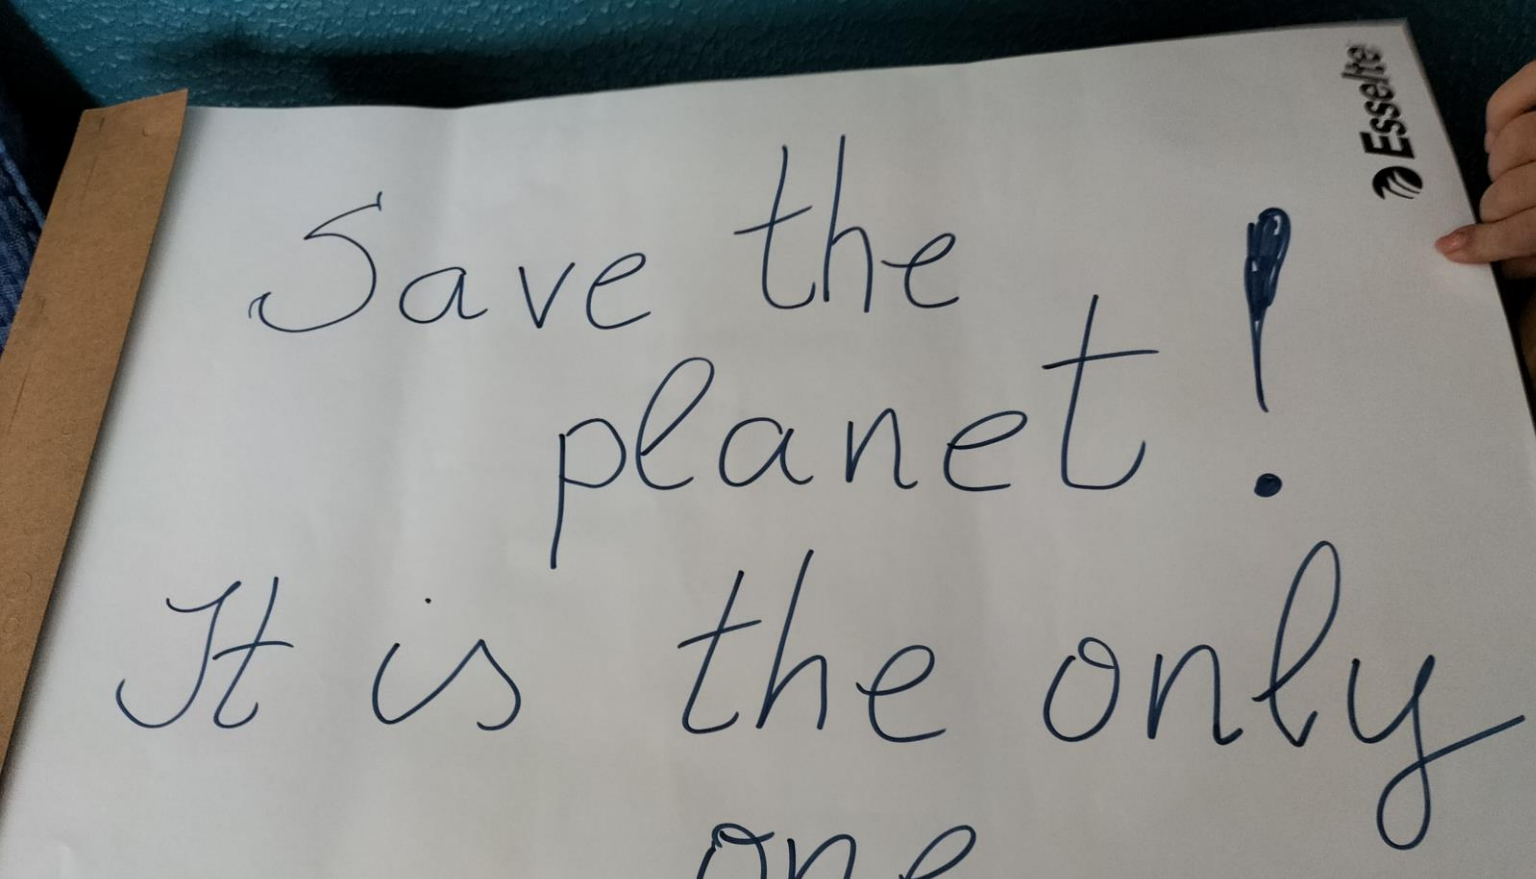 Esselte
Save the
planet!
It is the only
one